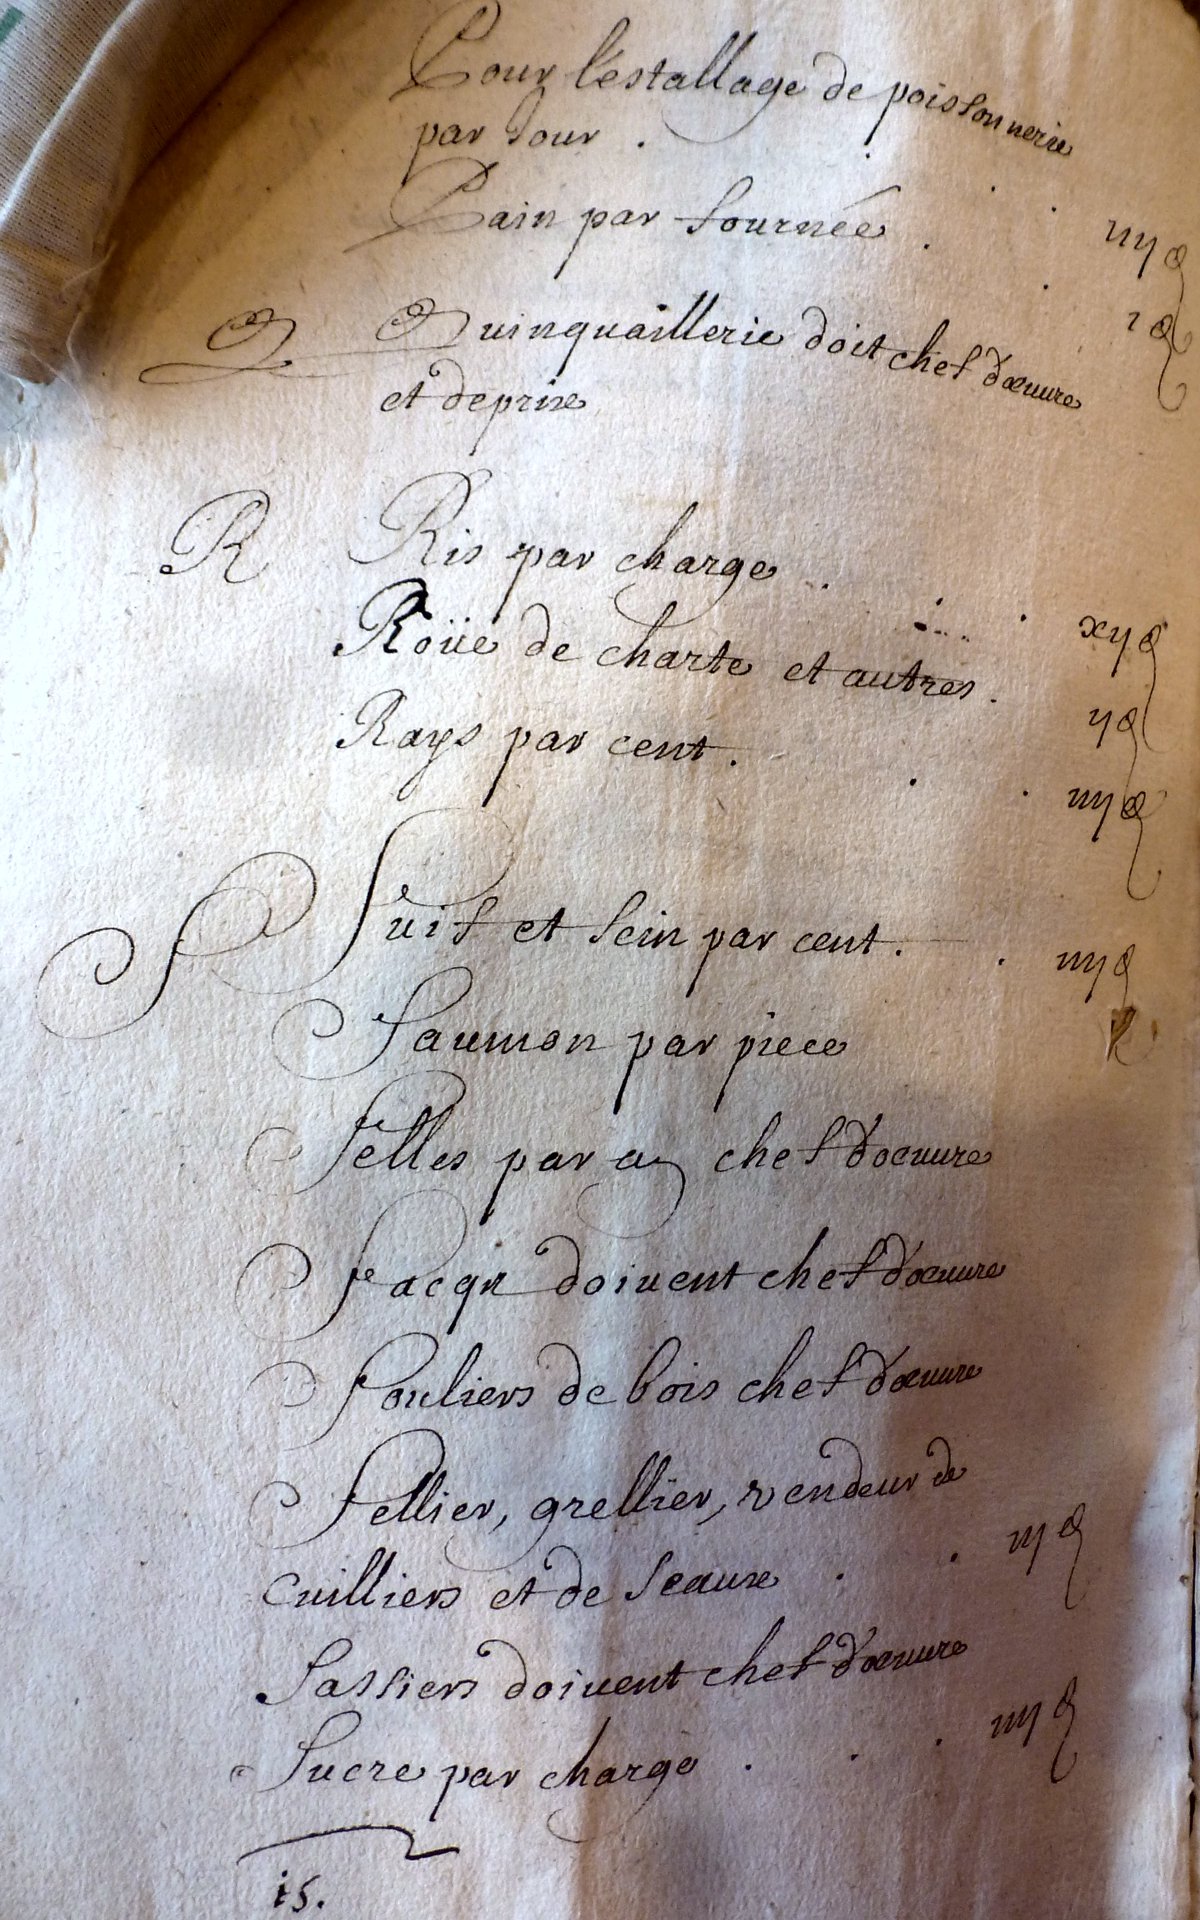 Pour l'estallage de poissonnerie
par Jour .
Pain par fournée . . . iiij d
. i d
Q Quinquaillerie doit chef d'oeuure
et deprise
R Ris par charge . . . xij d
Roüe de charte et autres . ij d
Rays par cent . . . iiij d
S Suif et sein par cent . . iiij d
Saumon par piece
Selles par an chef d'oeuure
Sacqz doiuent chef d'oeuure
Souliers de bois chef d'oeuure
Sellier, grellier, vendeur de
cuilliers et de seaux . . iij d
Sassiers doiuent chef d'oeuure
Sucre par charge . . . iiij d
15.